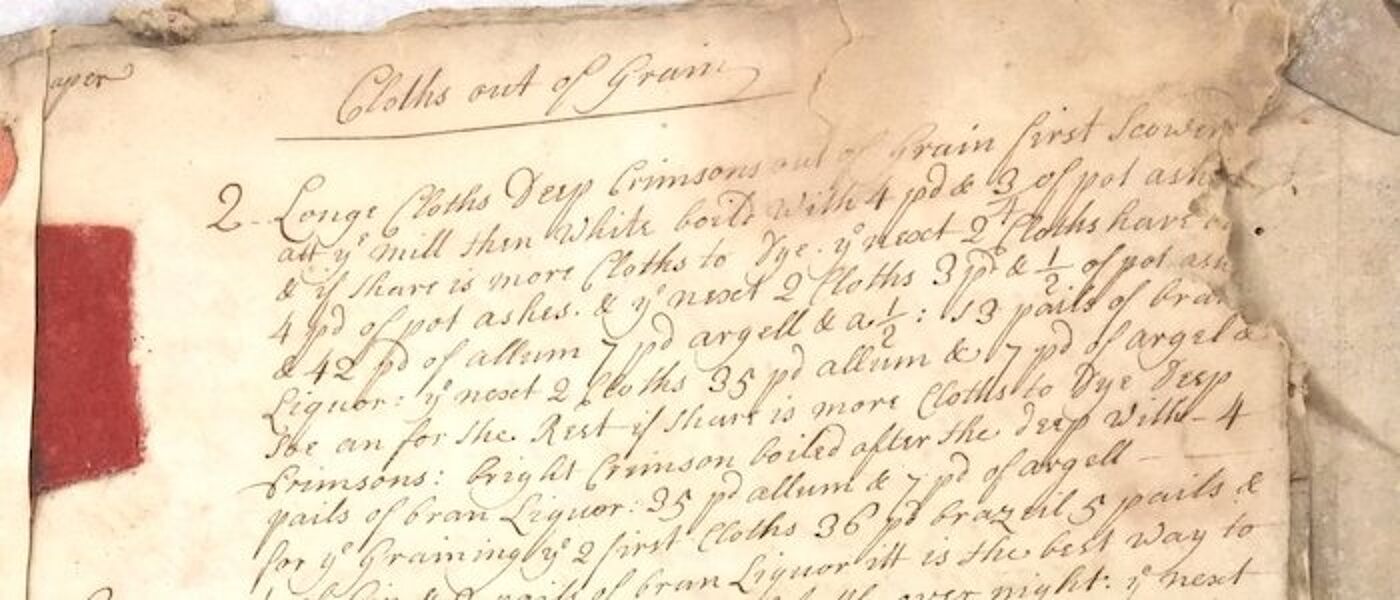 aper
Cloths out of Grain
2 Longe Cloths Deep Crimsons out of Grain first Scower
att yᵉ mill then White boild With 4 pd & 3/4 of pot ash
& if thare is more Cloths to Dye. yᵉ next 2 Cloths have
4 pd of pot ashes. & yᵉ next 2 Cloths 3 pd & 1/2 of pot ash
& 42 pd of allum 7 pd argell & a 1/2 : 13 pails of bran
Liquor: yᵉ next 2 Cloths 35 pd allum & 7 pd of argel &
soe an for the Rest if thare is more Cloths to Dye Deep
Crimsons: bright Crimson boiled after the deep With - 4
pails of bran Liquor: 35 pd allum & 7 pd of argell
for yᵉ Graining yᵉ 2 first Cloths 36 pd brazeil 5 pails &
pails of bran Liquor itt is the best Way to
over night: yᵉ next